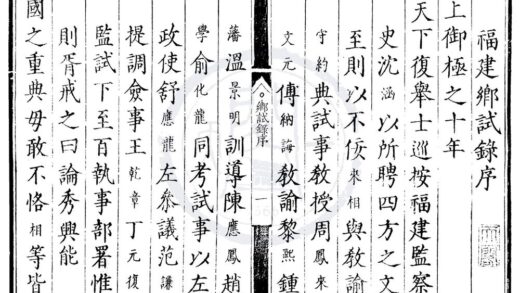 福建鄉試錄序
上御極之十年
天下復舉士巡按福建監察
史沈涵以所聘四方之文
至則以不佞來相與教諭
守約典試事教授周鳳來
文元傅納誨教諭黎熙鍾
鄉試錄序
一
藩溫景明訓導陳應鳳趙
學俞化龍同考試事以左
政使舒應龍左叅議范謙
提調僉事王乾章丁元復
監試下至百執事部署惟
則胥戒之曰論秀興能
國之重典毋敢不恪相等皆